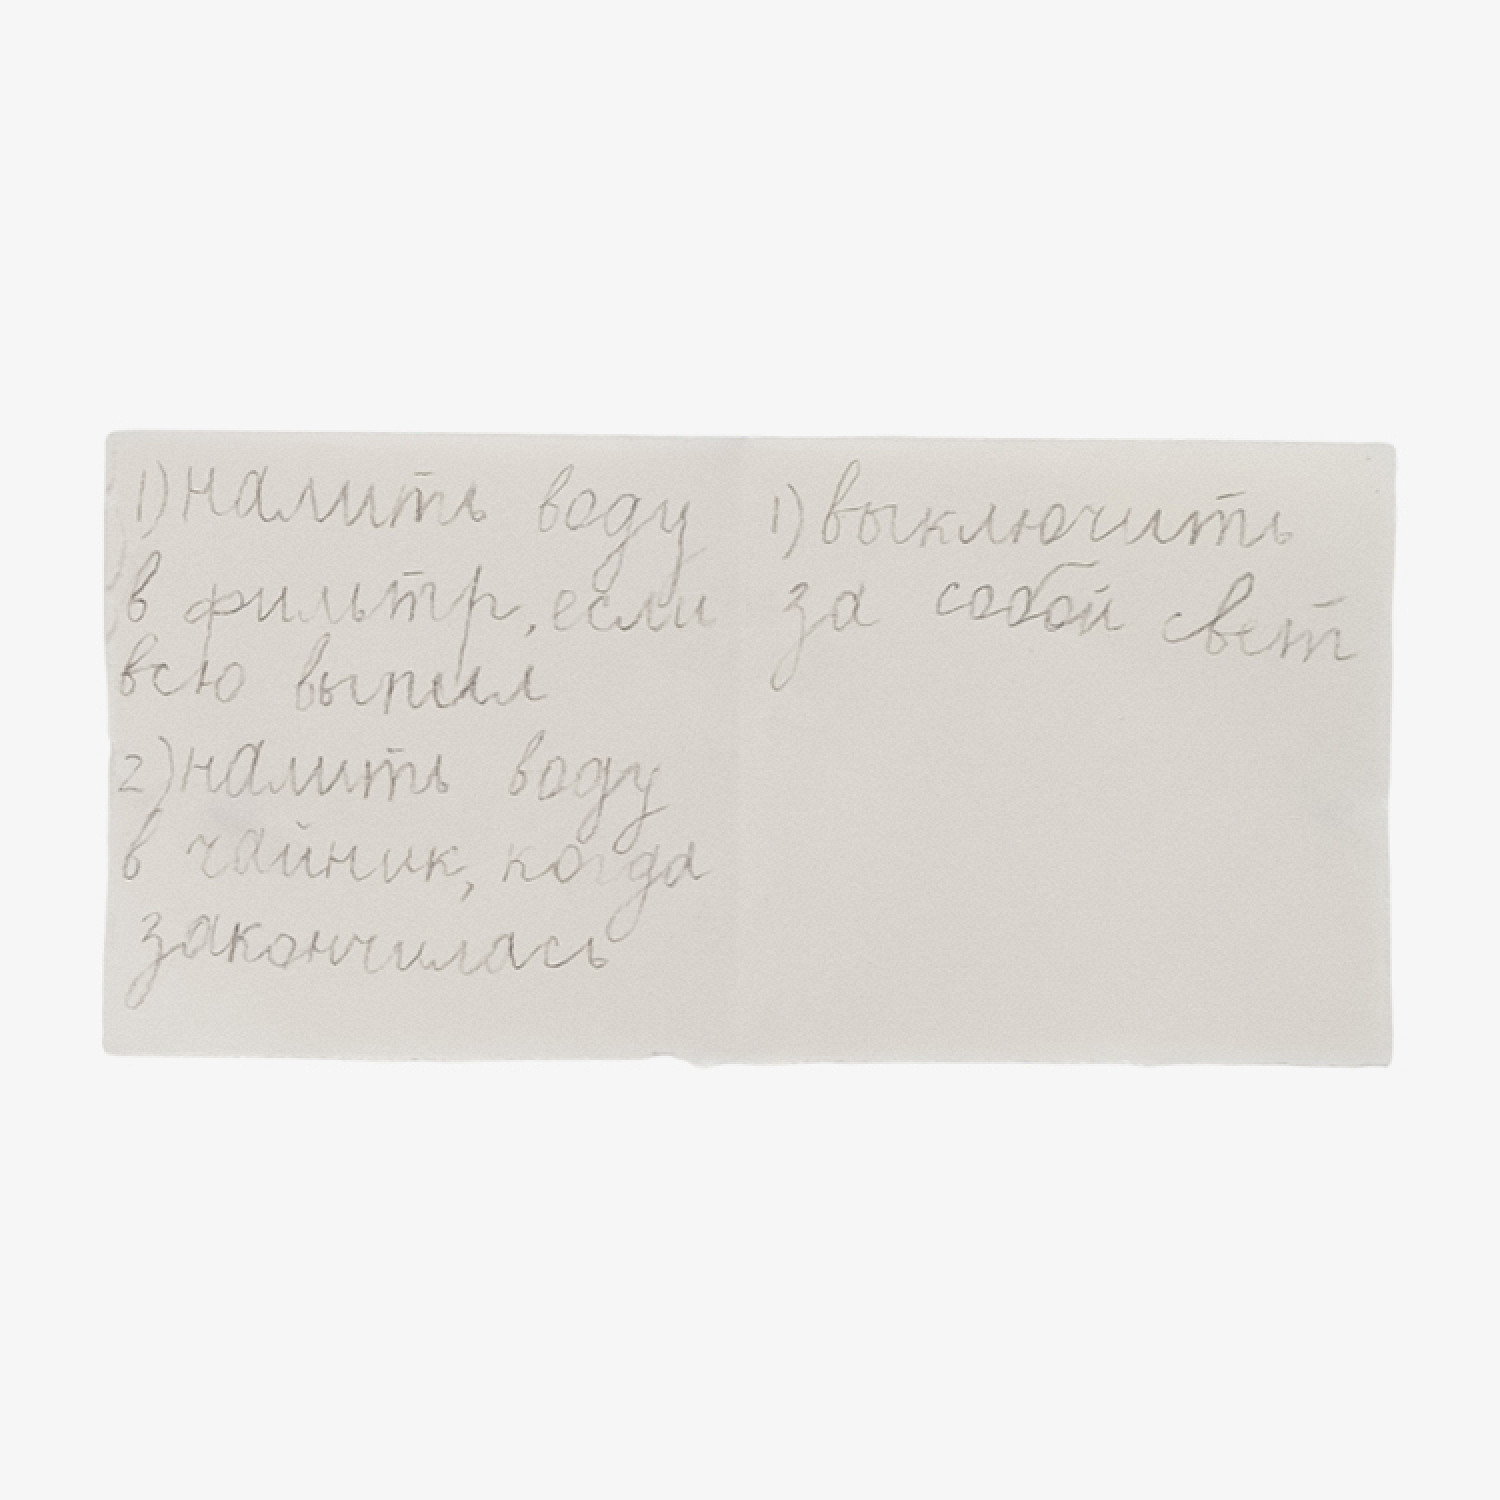 1) налить воду
в фильтр, если
всю выпил
2) налить воду
в чайник, когда
закончилась
1) выключить
за собой свет